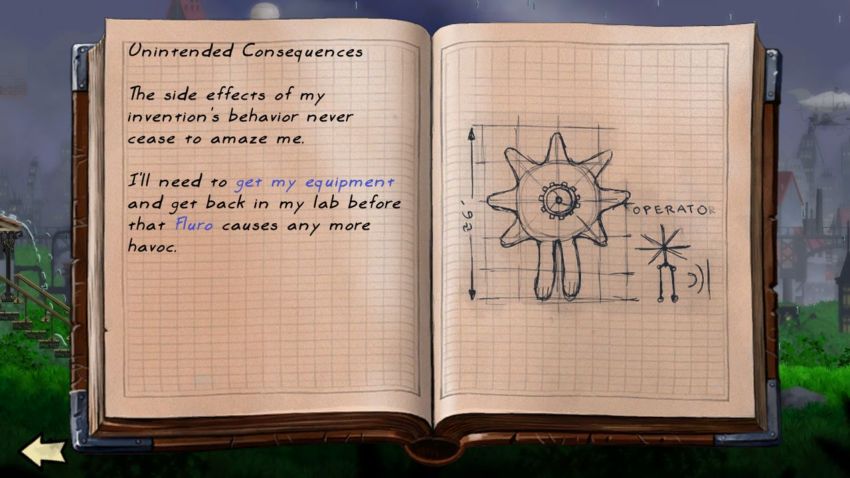 Unintended Consequences
The side effects of my
invention's behavior never
cease to amaze me.
I'll need to get my equipment
and get back in my lab before
that Fluro causes any more
havoc.
.92
OPERATOR